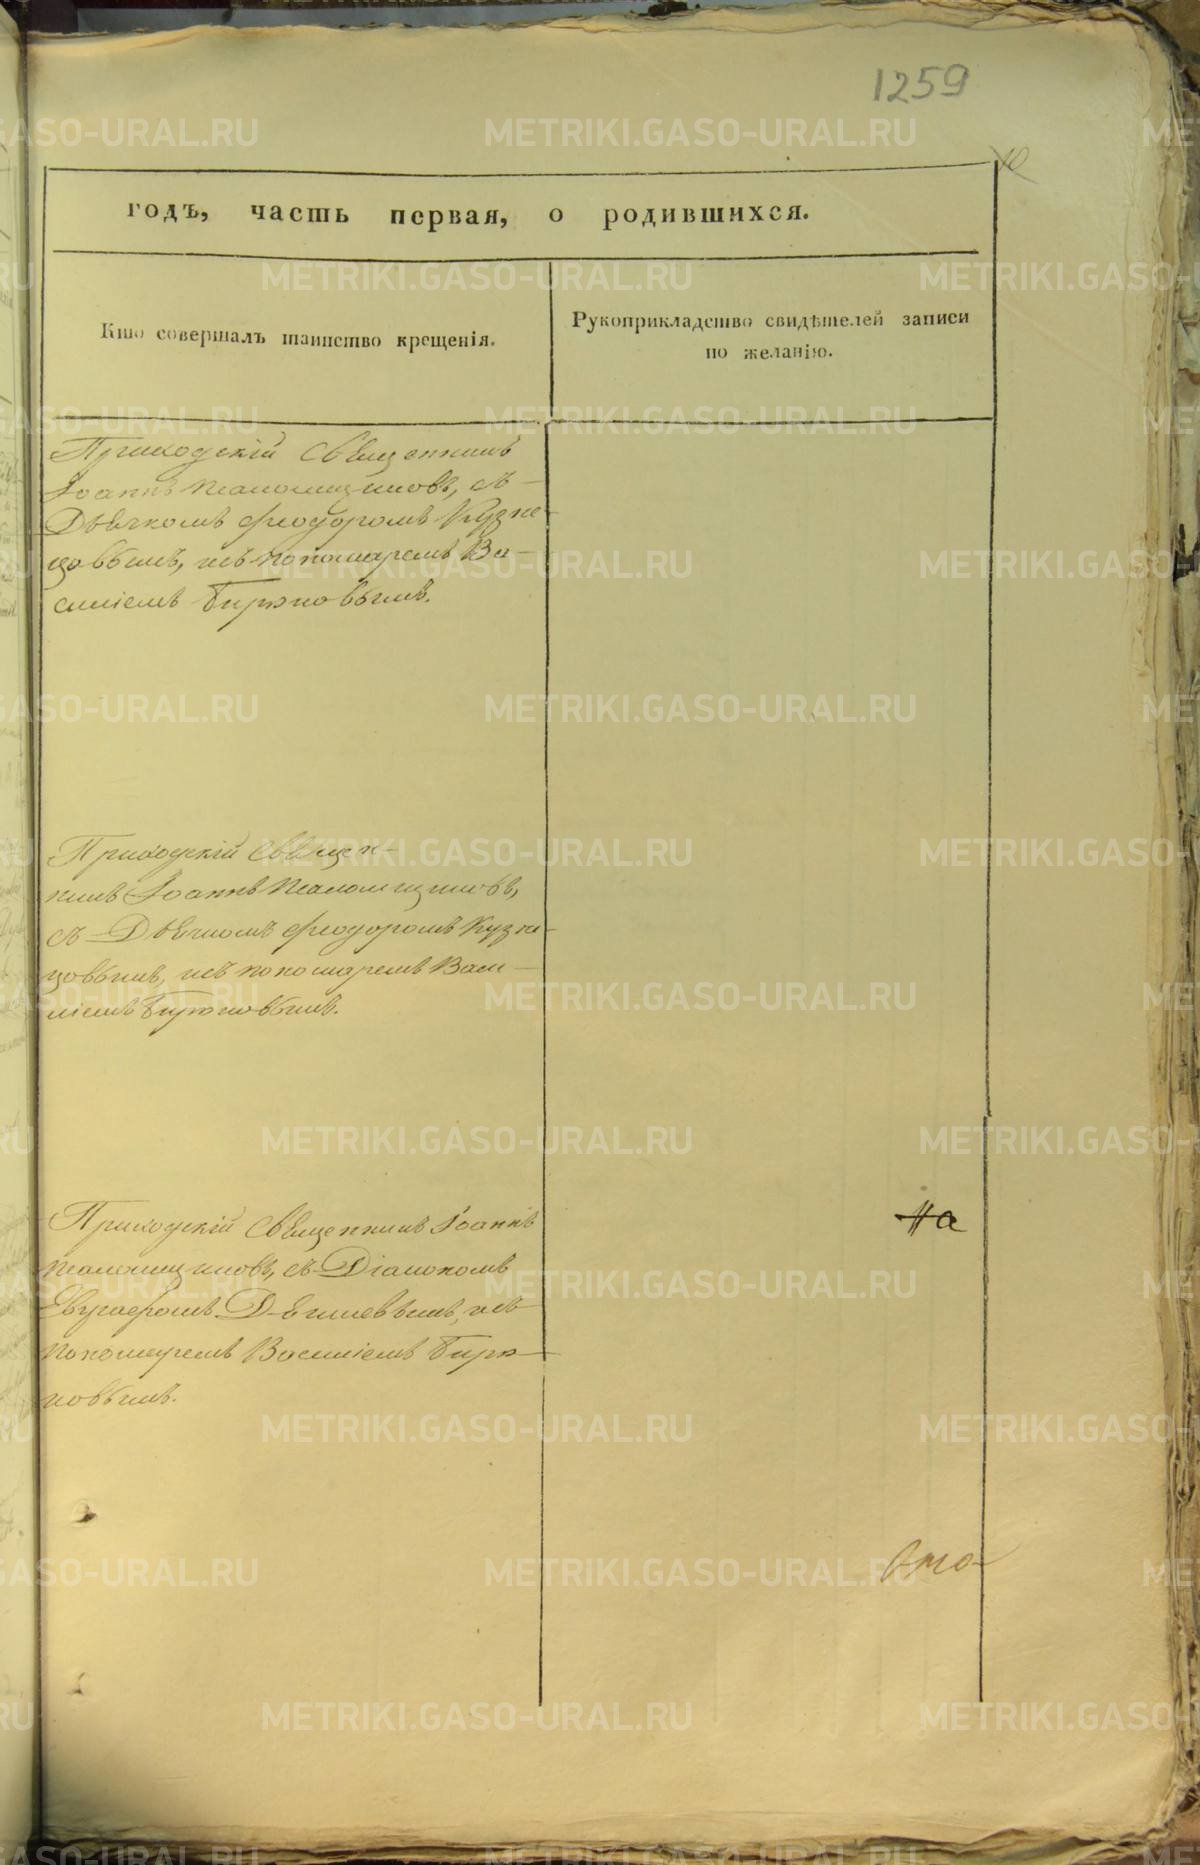 1259
10
годъ, часть первая, о родившихся.
Кто совершалъ таинство крещенія.
Рукоприкладство свидѣтелей записи
по желанію.
Приходскій Священникъ
Іоаннъ Псаломщиковъ, съ
Дьячкомъ Феодоромъ Кузне-
цовымъ, и съ пономаремъ Ва-
силіемъ Бирюковымъ.
Приходскій Священ-
никъ Іоаннъ Псаломщиковъ,
съ Дьячкомъ Феодоромъ Кузне-
цовымъ, и съ пономаремъ Васи-
ліемъ Бирюковымъ.
Приходскій Священникъ Іоаннъ
Псаломщиковъ, съ Діакономъ
и съ
пономаремъ Василіемъ Бирю-
ковымъ.
На
METRIKI.GASO-URAL.RU